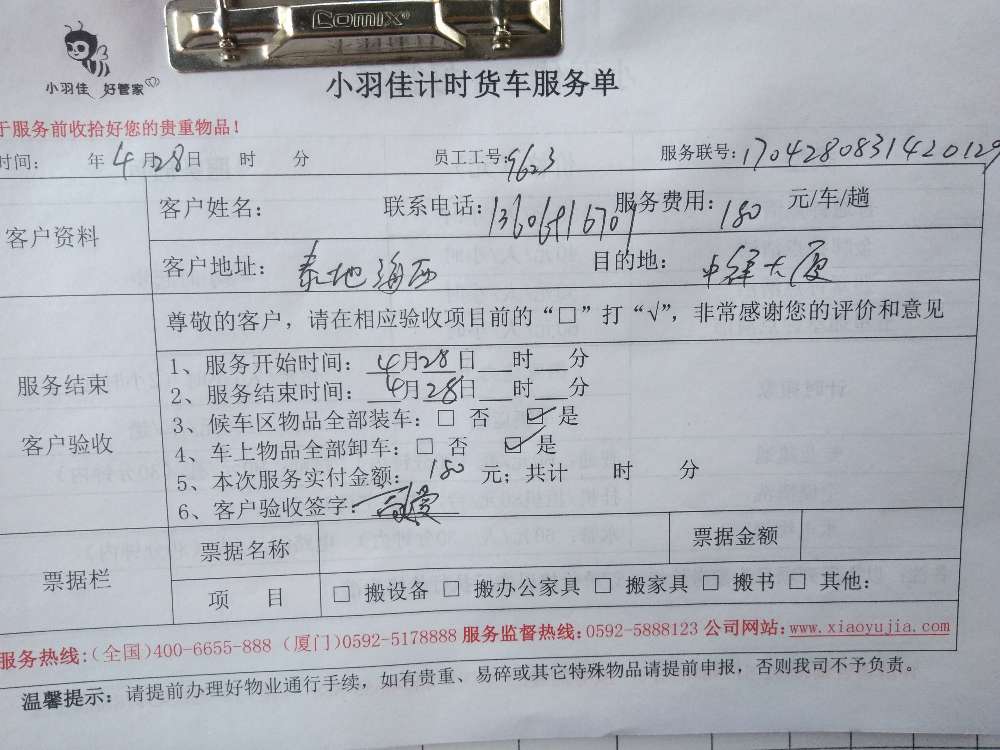 Comix®
小羽佳 好管家
小羽佳计时货车服务单
于服务前收拾好您的贵重物品!
时间: 年4月28日 时 分 员工工号:9623 服务联号:1704280831420129
客户资料
客户姓名: 联系电话: 服务费用:180 元/车/趟
客户地址:泰地海西 目的地:中绿大厦
服务结束
客户验收
尊敬的客户,请在相应验收项目前的“□”打“√”,非常感谢您的评价和意见
1、服务开始时间:4月28日___时___分
2、服务结束时间:4月28日___时___分
3、候车区物品全部装车:□ 否 ☑ 是
4、车上物品全部卸车:□ 否 ☑ 是
5、本次服务实付金额:180 元;共计 时 分
6、客户验收签字:
票据栏
票据名称 票据金额
项 目 □ 搬设备 □ 搬办公家具 □ 搬家具 □ 搬书 □ 其他:
服务热线:(全国)400-6655-888 (厦门)0592-5178888 服务监督热线:0592-5888123 公司网站:www.xiaoyujia.com
温馨提示:请提前办理好物业通行手续,如有贵重、易碎或其它特殊物品请提前申报,否则我司不予负责。